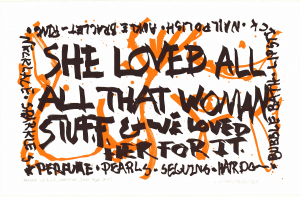 NAIL POLISH · ANKLE BRACLET · RING
SHE LOVED ALL
ALL THAT WOMAN
STUFF & WE LOVED
HER FOR IT.
NECKLACE · SPARKLES
PERFUME · PEARLS · SEQUINS · HAIRDO
BUBBLE BATH · LIPSTICK